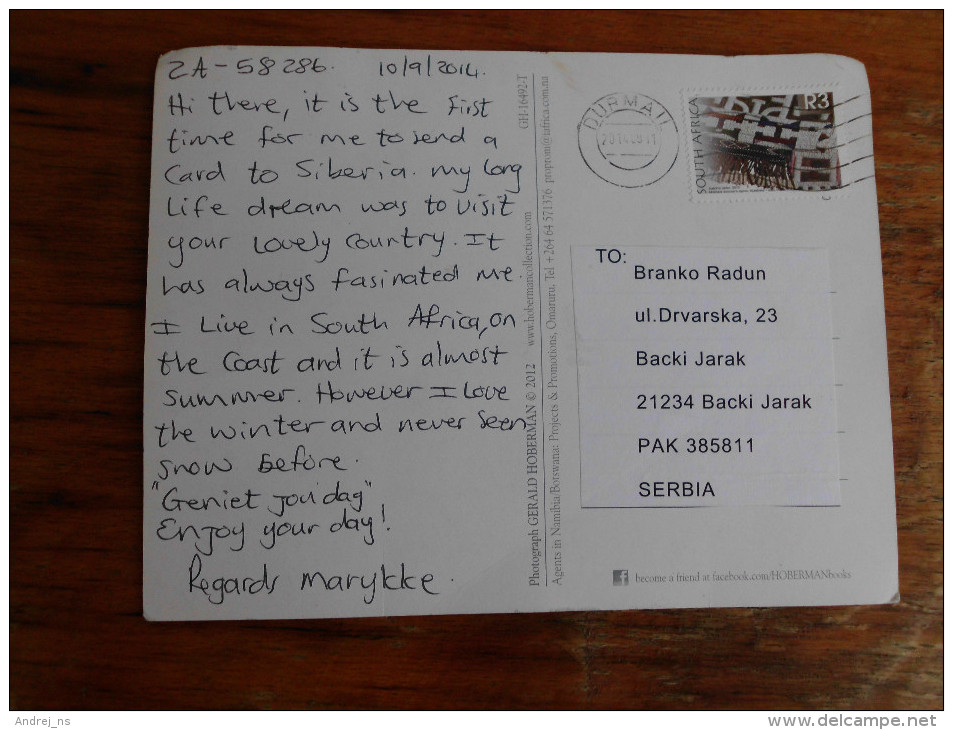 ZA-58286. 10/9/2014.
Hi there, it is the first
time for me to send a
Card to Siberia. my long
Life dream was to visit
your lovely country. It
has always fasinated me.
I Live in South Africa, on
the Coast and it is almost
summer. However I love
the winter and never seen
snow before.
"Geniet jou dag"
Enjoy your day!
Regards Marykke.
GH-16492-T
Photograph GERALD HOBERMAN © 2012 www.hobermancollection.com
Agents in Namibia/Botswana: Projects & Promotions, Omaruru, Tel +264 64 571376 proprom@iafrica.com.na
DURMAIL
SOUTH AFRICA
R3
TO:
Branko Radun
ul.Drvarska, 23
Backi Jarak
21234 Backi Jarak
PAK 385811
SERBIA
become a friend at facebook.com/HOBERMANbooks
Andrej_ns
www.delcampe.net